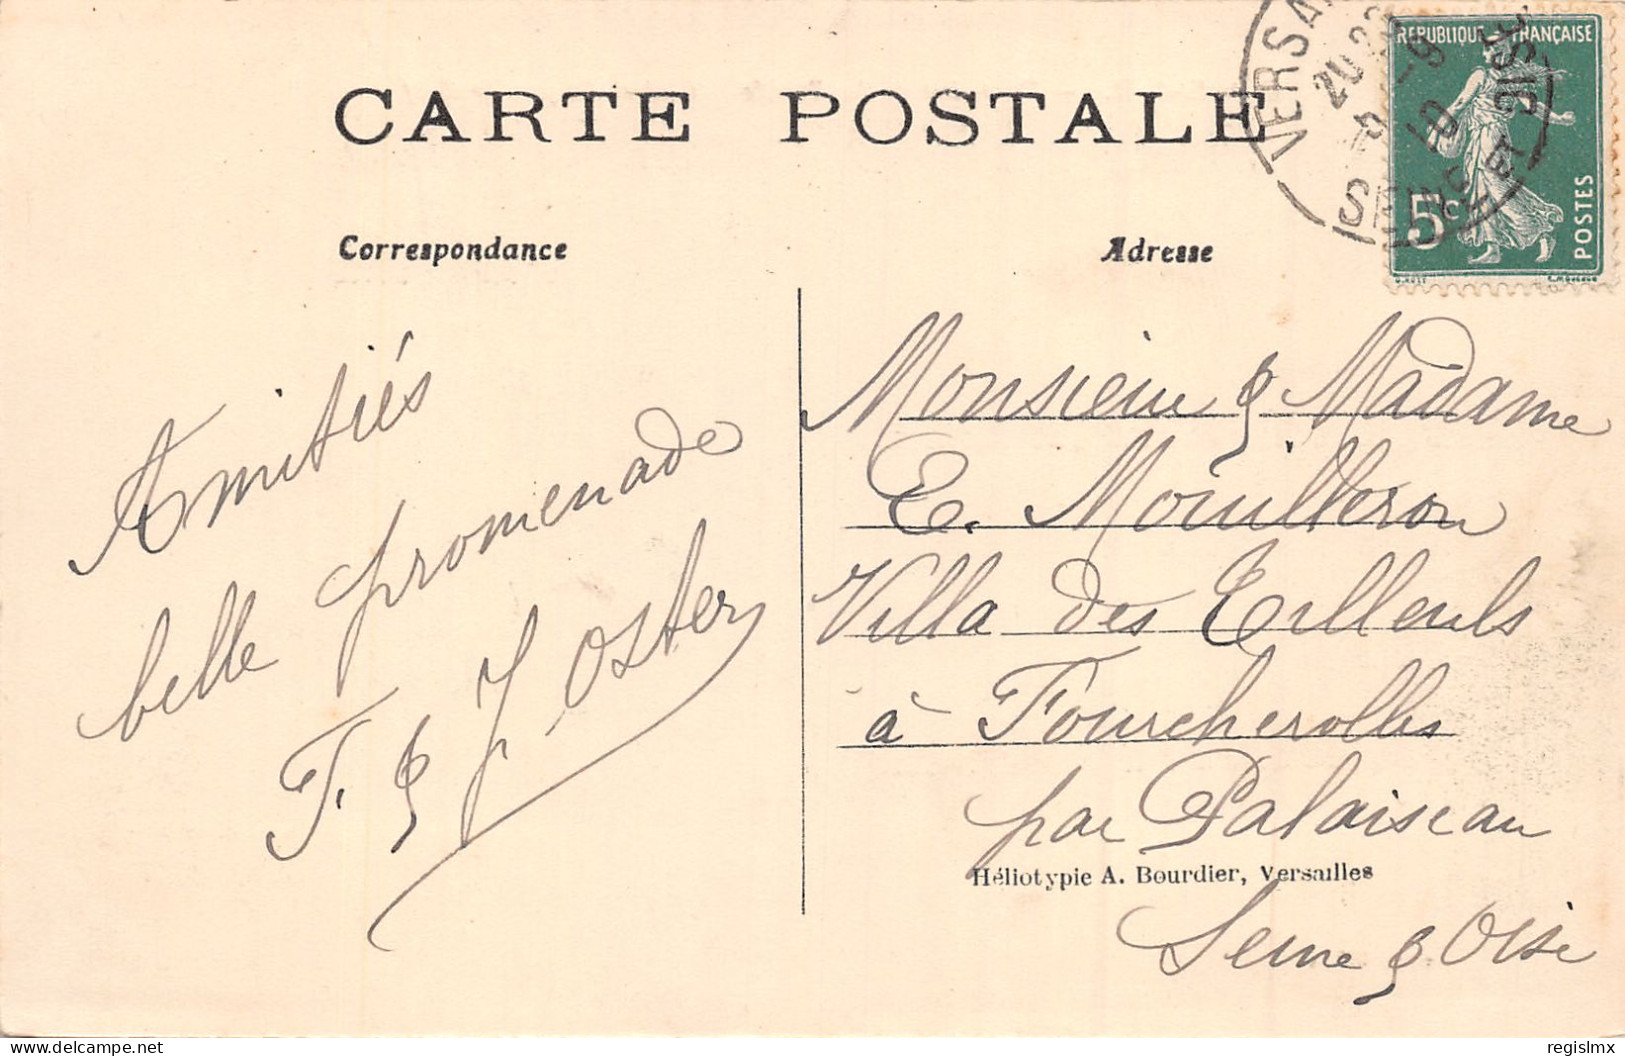 CARTE POSTALE
Correspondance
Adresse
REPUBLIQUE FRANÇAISE
5c
POSTES
SEINE ET OISE
Amitiés
belle promenade
F. & J. Oster
Monsieur & Madame
E. Mouilleron
Villa des Tilleuls
à Fourcherolles
par Palaiseau
Seine & Oise
Héliotypie A. Bourdier, Versailles
regislmx